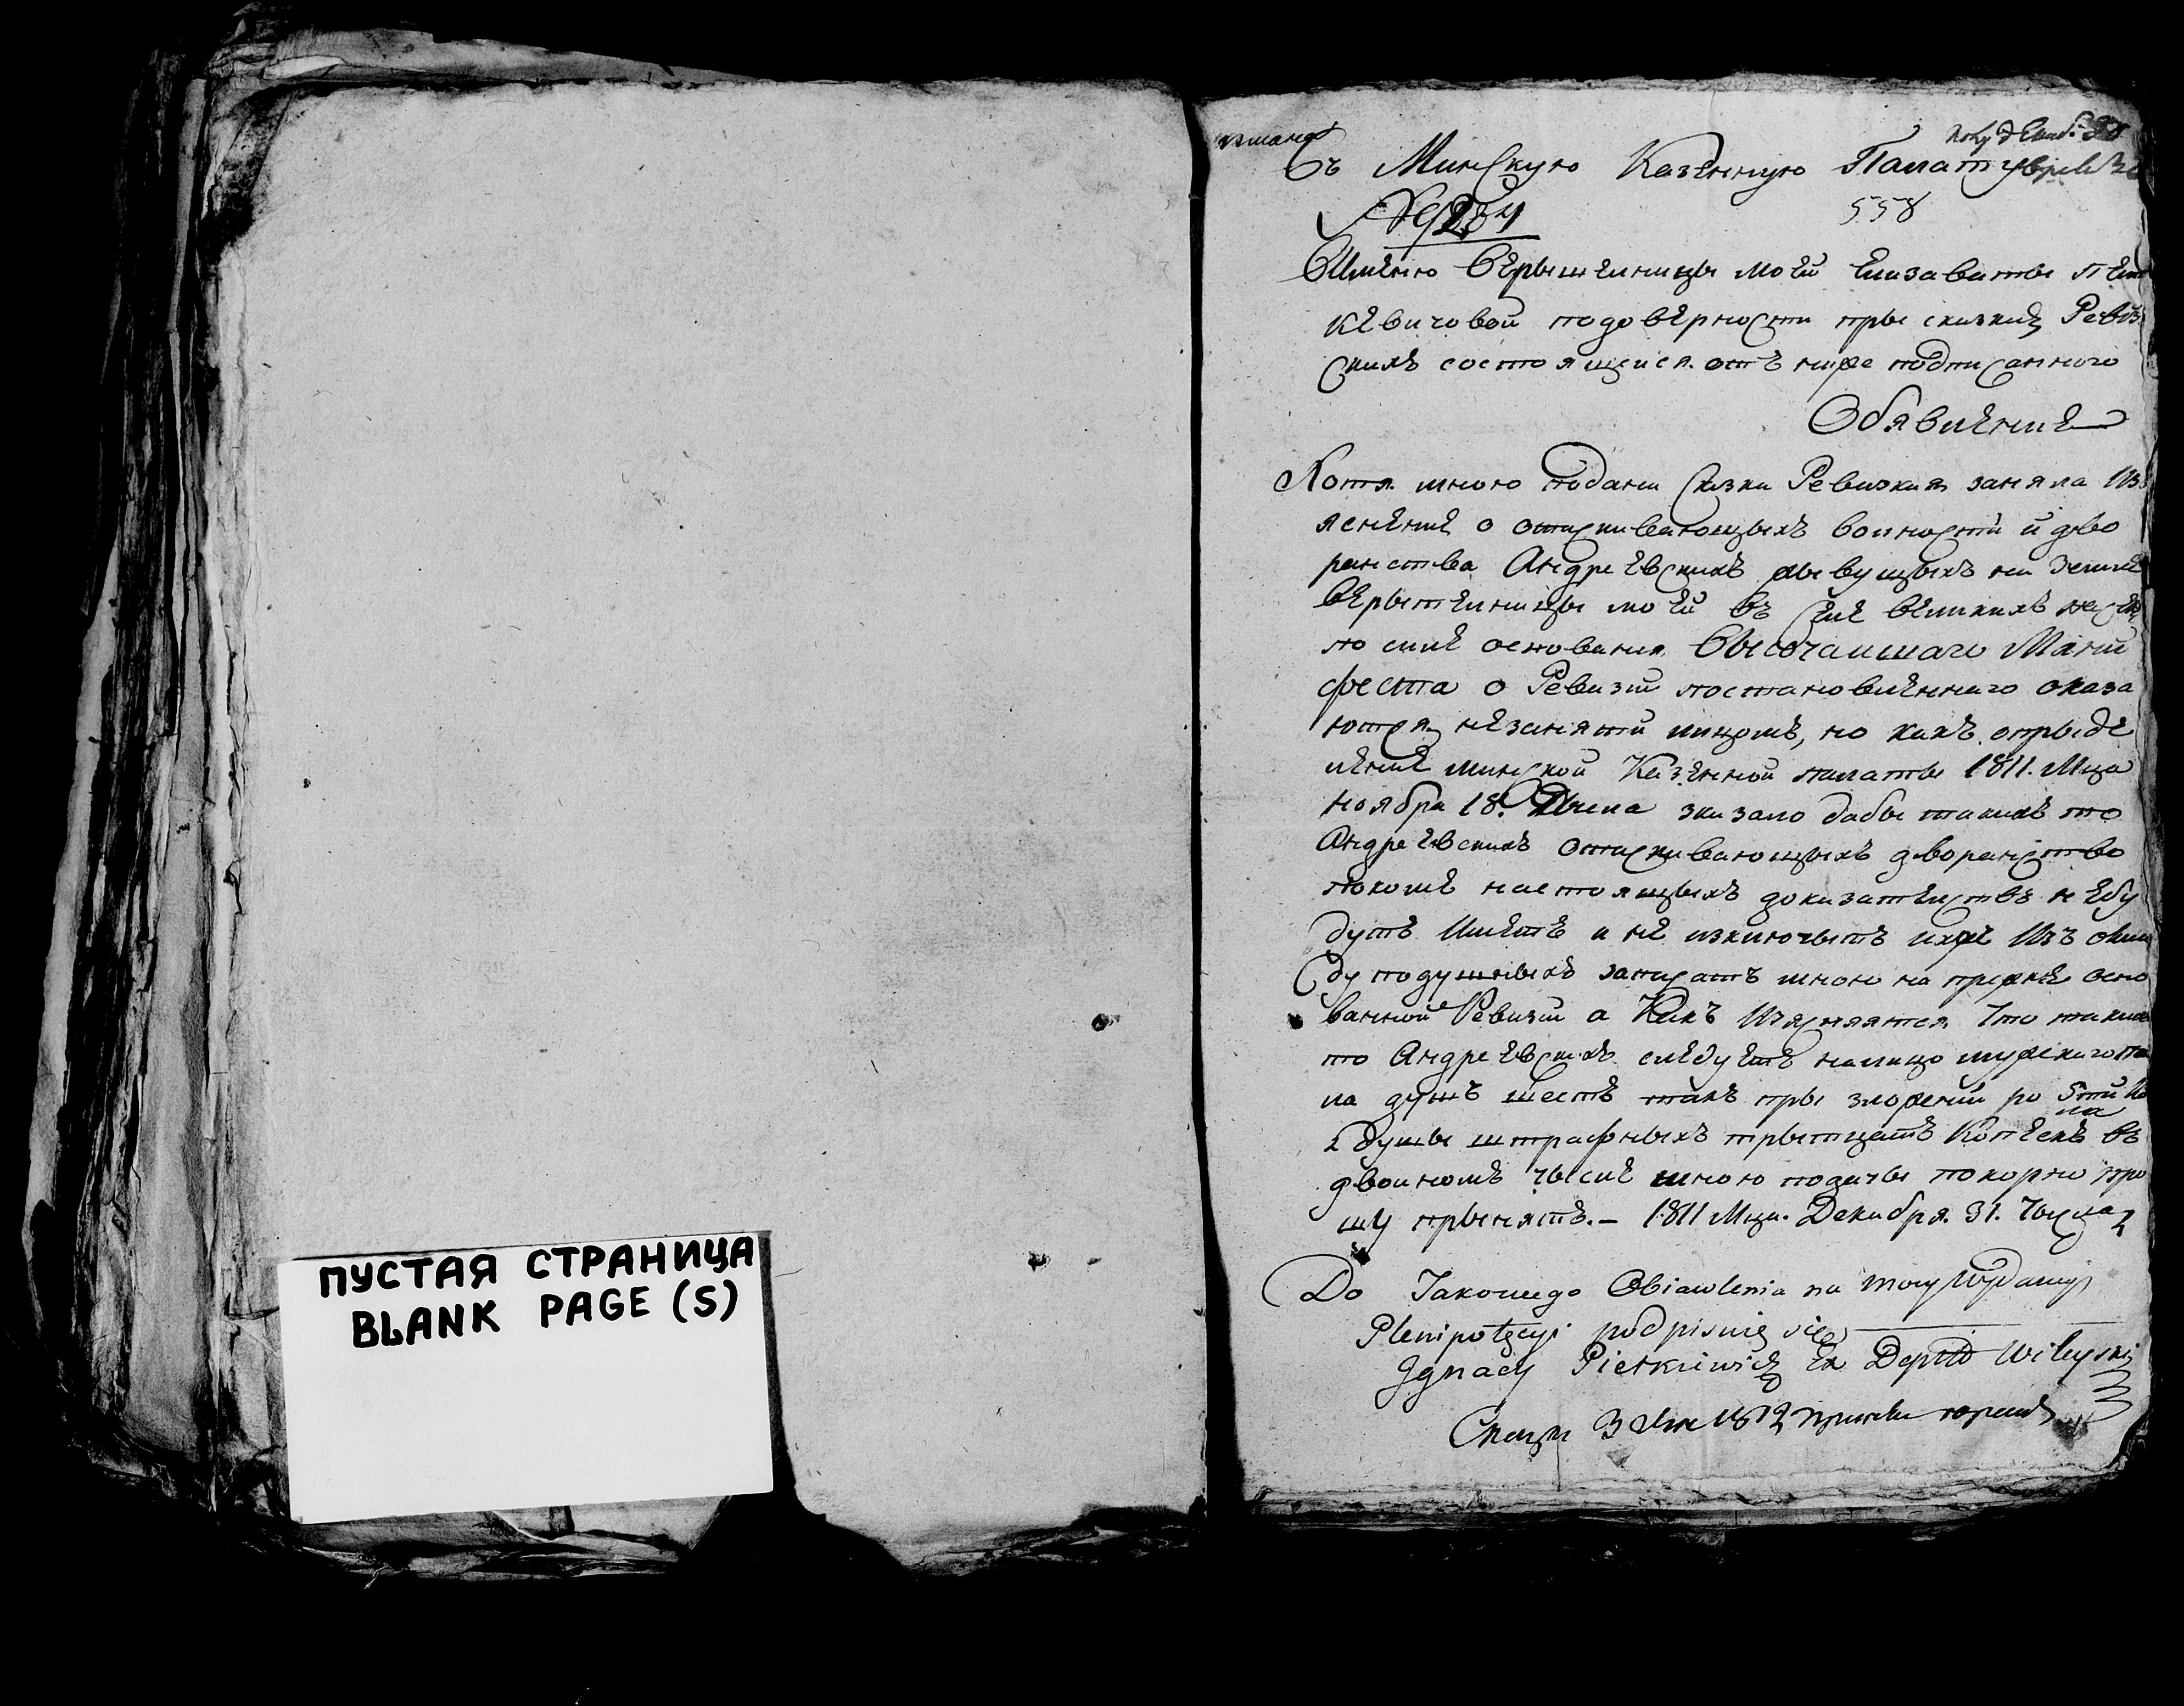 ПУСТАЯ СТРАНИЦА
BLANK PAGE (S)
Въ Минскую Казенную Палату
558
Имению Верытелницы моей Елизаветы Пет
кевичовой подоверности пры сказки Ревиз
скихъ состоящейся отъ ниже подписанного
Обявление
Хотя мною подани Скизки Ревизкия заняла Из
яснение о отискивающыхъ волности и дво
ранства Андреевскихъ жывущыхъ на Земле
Верытелницы моей въ
по силе основания Высочаишаго Мани
феста о Ревизии постановленнаго оказа
ются незаняти лицомъ, но какъ опрыде
ление минской Казенной палаты 1811. Мца
ноября 18. Дысла зказало дабы такихъ то
Андреевскихъ отискивающыхъ дворанство
покоше настоящыхъ доказателствъ небу
дутъ Иметъ и не изключытъ ихже Изъ окла
ду подушныхъ записатъ мною на прежне осно
ванной Ревизии а Какъ Изясняятся Что таких
то Андреевскихъ следуетъ налицо мужскаго по
ла душъ шесть такъ пры зложении по 5ти ко
ла
душы штрафныхъ трытцатъ Копеекъ въ
двоиномъ чысле мною подачы покорно про
шу прынятъ. – 1811 Мца. Декабря. 31. Чысла
Do Takowego Obiawlenia na mocy Wydaney
Plenipotęcyi podpisuię się
Jgnacy Pietkiewicz Ex Deptto Wileyski